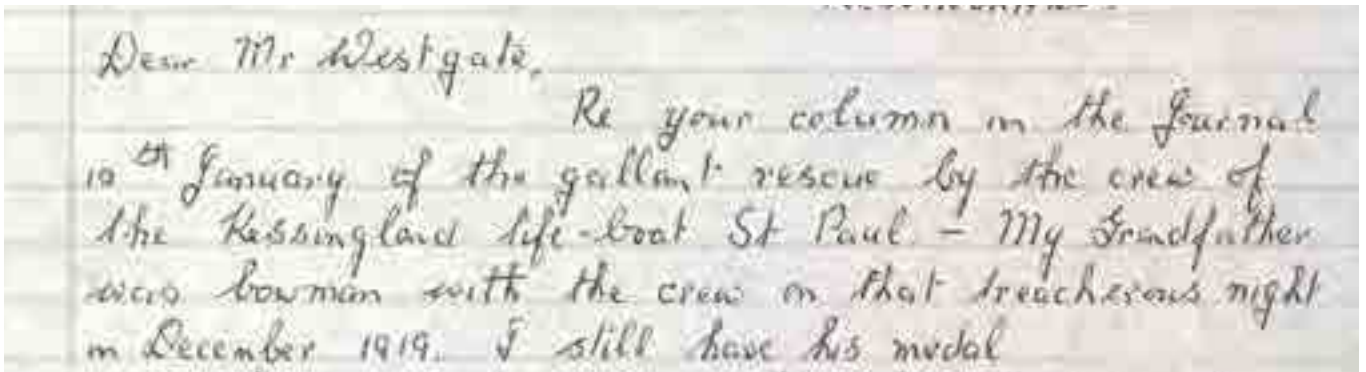 Dear Mr Westgate,
Re your column in the Journal
10th January of the gallant rescue by the crew of
the Kessingland life-boat St Paul - My Grandfather
was bowman with the crew on that treacherous night
in December 1919. I still have his medal